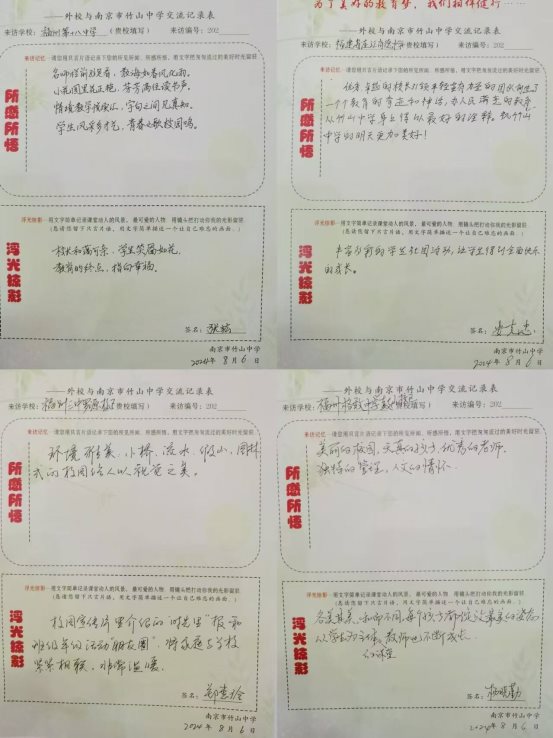 ——外校与南京市竹山中学交流记录表
来访学校：福州第十八中学（贵校填写） 来访编号：202
来访记忆—请您用只言片语记录下您的所见所闻，所感所悟，用文字把匆匆流过的美好时光留驻
所感所悟
名师
教海如春风化雨，
小花园里花正艳，
字句之间见真知。
学生风采多才艺，青春之歌校园鸣。
浮光掠影—用文字简单记录课堂动人的风景，最可爱的人物 用镜头把打动你我的光影留驻
（恳请您留下只言片语，用文字简单描述一个让自己难忘的画面。）
浮光掠影
校长和蔼可亲，学生笑靥如花，
教育的终点，指向幸福。
签名：
南京市竹山中学
2024年8月6日
为了美好的教育梦，我们相伴健行……
——外校与南京市竹山中学交流记录表
来访学校：（贵校填写） 来访编号：202
来访记忆—请您用只言片语记录下您的所见所闻，所感所悟，用文字把匆匆流过的美好时光留驻
所感所悟
一个教育的奇迹和神话，办人民满意的教育
从竹山中学身上得以最好的诠释。祝竹山中
学的明天更加美好！
浮光掠影—用文字简单记录课堂动人的风景，最可爱的人物 用镜头把打动你我的光影留驻
（恳请您留下只言片语，用文字简单描述一个让自己难忘的画面。）
浮光掠影
丰富多彩的学生社团活动，让学生得到全面快乐
的成长。
签名：
南京市竹山中学
2024年8月6日
——外校与南京市竹山中学交流记录表
来访学校：（贵校填写） 来访编号：202
来访记忆—请您用只言片语记录下您的所见所闻，所感所悟，用文字把匆匆流过的美好时光留驻
所感所悟
环境雅美，小桥、流水、假山，园林
式的校园给人以视觉之美。
浮光掠影—用文字简单记录课堂动人的风景，最可爱的人物 用镜头把打动你我的光影留驻
（恳请您留下只言片语，用文字简单描述一个让自己难忘的画面。）
浮光掠影
校园宣传片里介绍的“时光里”报和
班级年级活动“朋友圈”，将家庭与学校
紧紧相联，非常温馨。
签名：
南京市竹山中学
2024年8月6日
——外校与南京市竹山中学交流记录表
来访学校：（贵校填写） 来访编号：202
来访记忆—请您用只言片语记录下您的所见所闻，所感所悟，用文字把匆匆流过的美好时光留驻
所感所悟
美丽的校园，天真的孩子，优秀的老师，
独特的管理，人文的情怀
浮光掠影—用文字简单记录课堂动人的风景，最可爱的人物 用镜头把打动你我的光影留驻
（恳请您留下只言片语，用文字简单描述一个让自己难忘的画面。）
浮光掠影
各美其美，和而不同，每个孩子都绽放最美的姿态
以学生为主体，教师也不断成长
签名：
南京市竹山中学
2024年8月6日